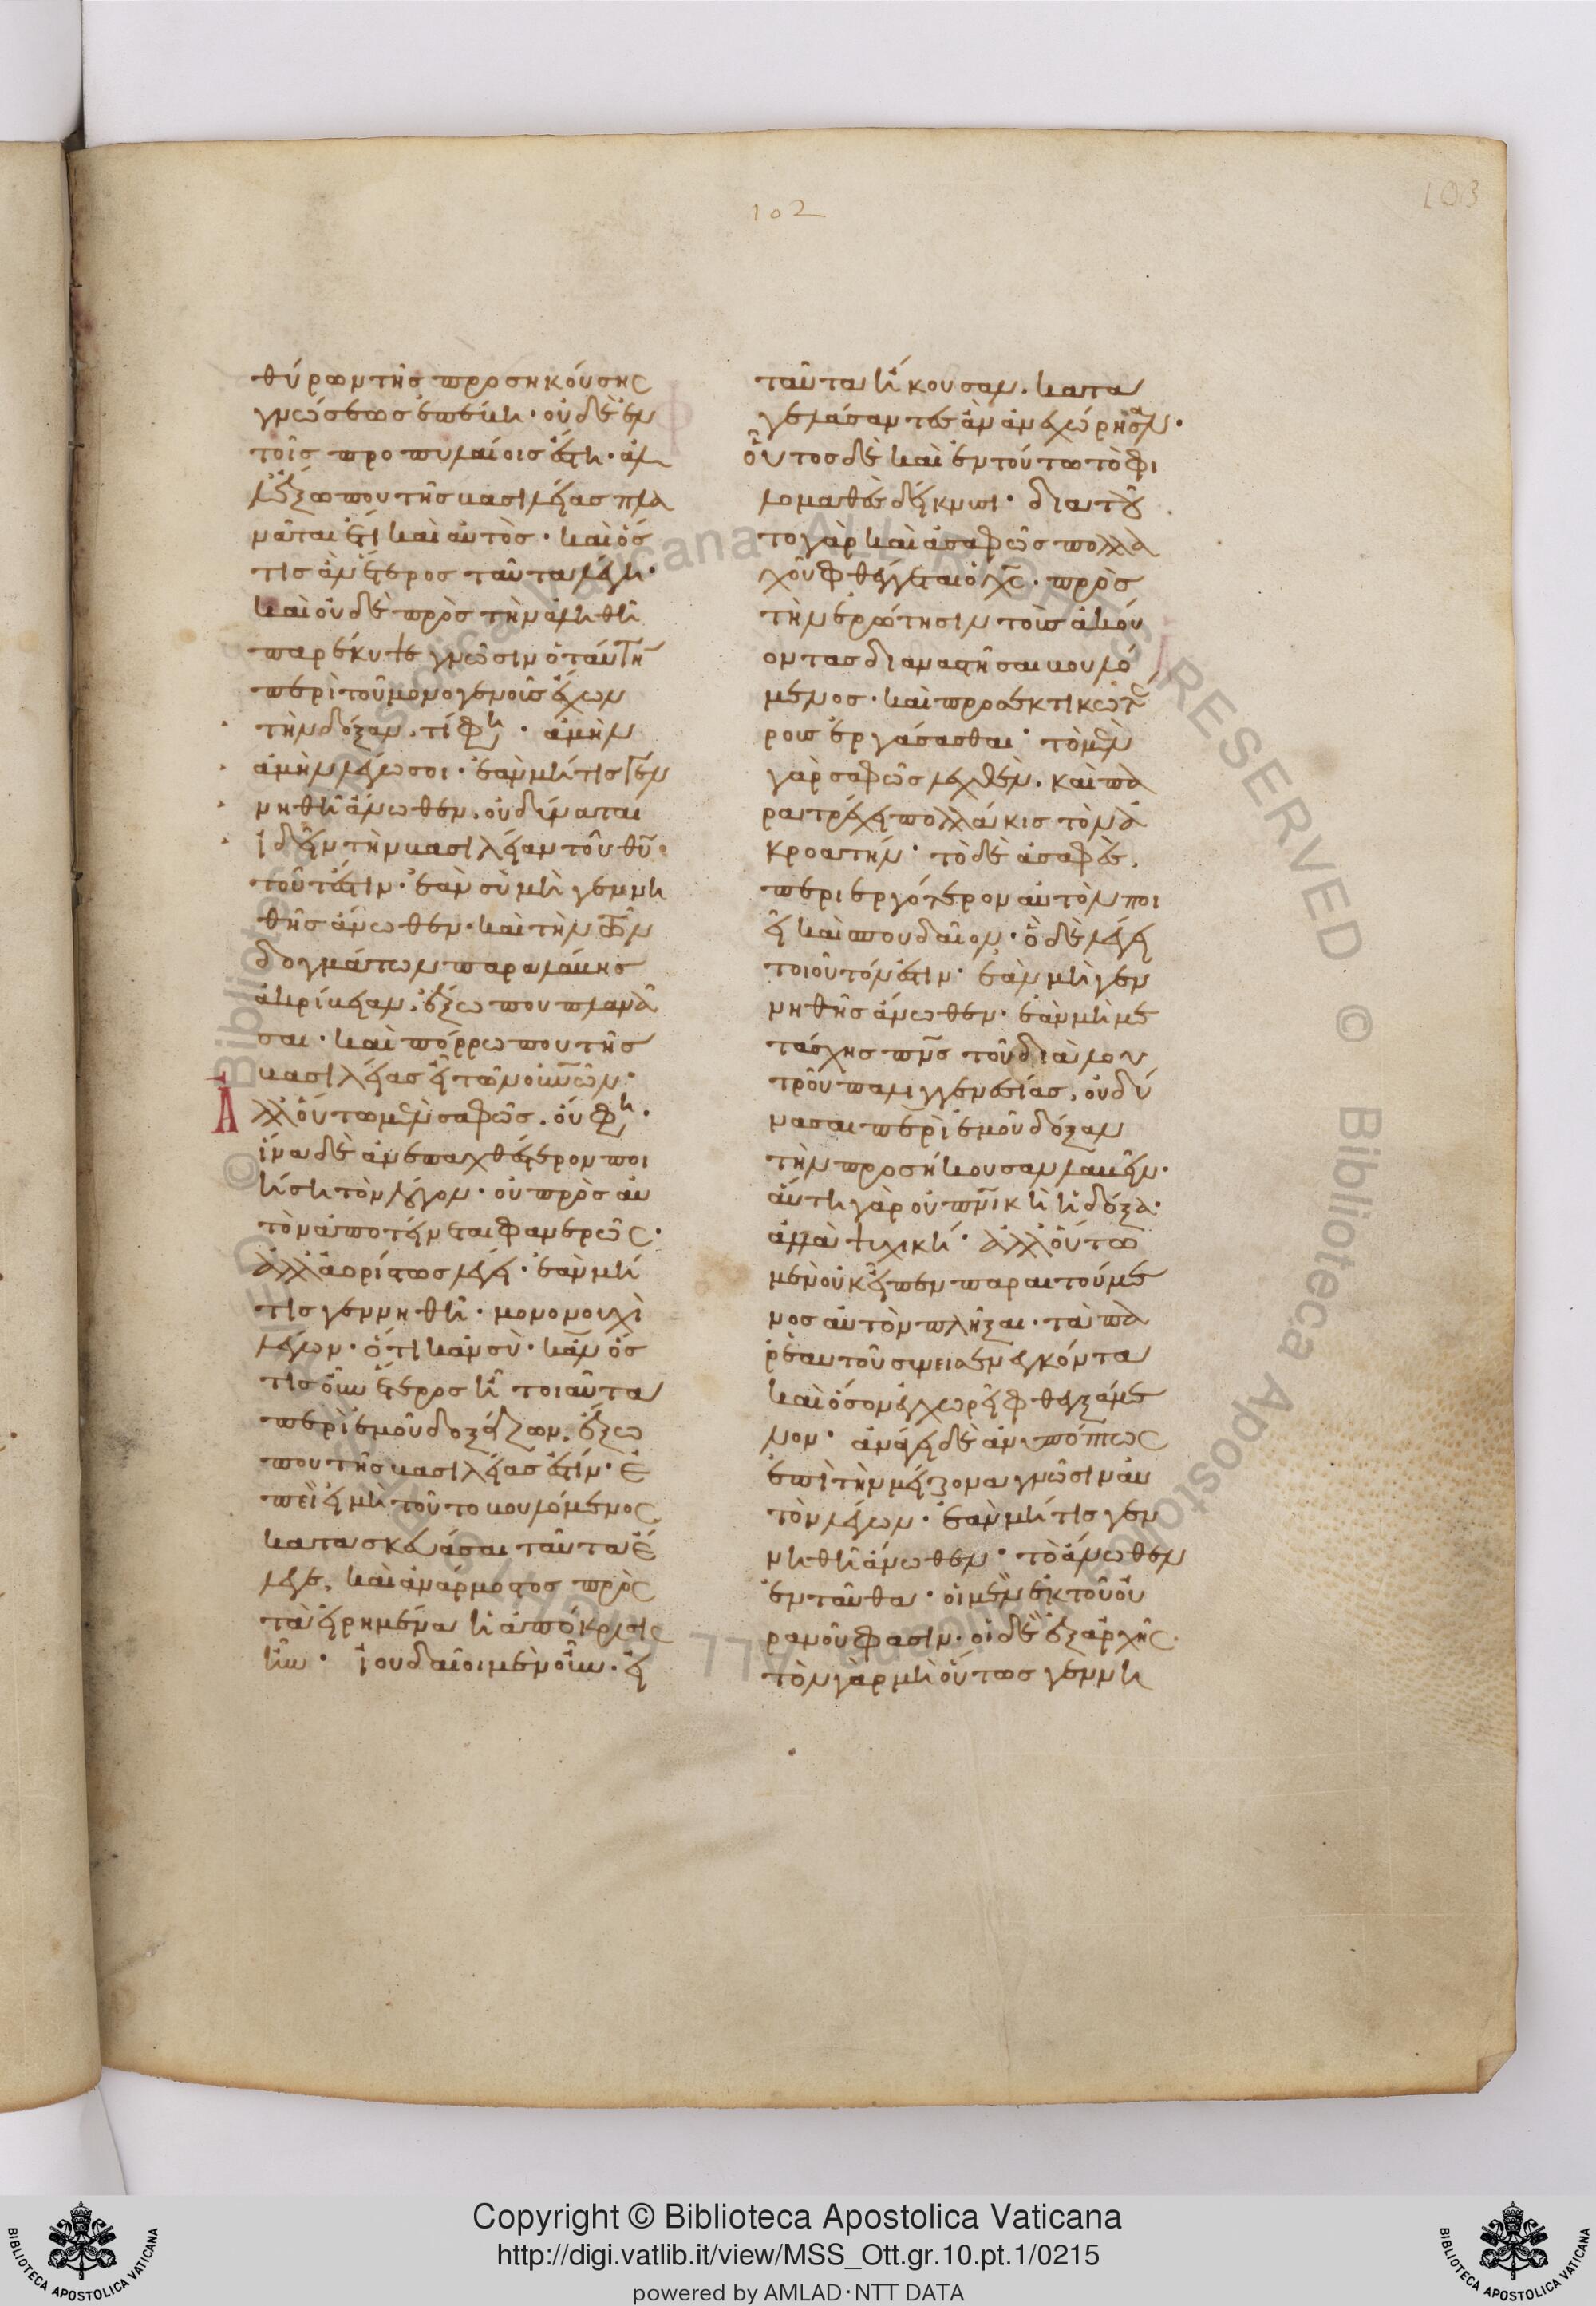 102
103
θύρων τῆς προσηκούσης
γνώσεως ἐπέβη· οὐδὲ ἐν
τοῖς προπυλαίοις ἔστη· ἀλ
λ' ἔξω που τῆς βασιλείας πλα
νᾶται ἔτι καὶ αὐτὸς· καὶ ὅς
τις ἂν ἕτερος ταῦτα λέγη·
καὶ οὐδὲ πρὸς τὴν ἀληθῆ
παρέκυψε γνῶσιν ὁ ταύτην
περὶ τοῦ μονογενοῦς ἔχων
τὴν δόξαν. τί φη· ἀμὴν
ἀμὴν λέγω σοι· ἐὰν μή τις γεν
νηθῆ ἄνωθεν. οὐ δύναται
ἰδεῖν τὴν βασιλείαν τοῦ θῦ·
τοῦτέστιν· ἐὰν σὺ μὴ γεννη
θῆς ἄνωθεν· καὶ τὴν τῶν
δογμάτων παραλάβης
ἀκρίβειαν. ἔξω που πλανᾶ
σαι· καὶ πόρρω που τῆς
βασιλείας εἶ τῶν οὐνῶν·
Ἀλλ' οὕτω μὲν σαφῶς. οὔ φη·
ἵνα δὲ ἀνεπαχθέστερον ποι
ήση τὸν λόγον· οὐ πρὸς αὐ
τὸν ἀποτείνεται φανερῶς·
ἀλλ' ἀορίστως λέγει· ἐὰν μή
τις γεννηθῆ· μονονουχὶ
λέγων· ὅτι κἂν σὺ· κἂν ὅς
τις οὖν ἕτερος ἦ τοιαῦτα
περὶ ἐμοῦ δοξάζων. ἔξω
που τῆς βασιλείας ἐστίν· ἐ
πεὶ εἰ μὴ τοῦτο βουλόμενος
κατασκευάσαι ταῦτα ἔ
λεγε. καὶ ἀνάρμοστος πρὸς
τὰ εἰρημένα ἡ ἀπόκρισις
ἦν· ἰουδαῖοι μὲν οὖν. εἰ
ταῦτα ἤκουσαν. κατα
γελάσαντες ἂν ἀνεχώρησαν·
οὗτος δὲ καὶ ἐν τούτω τὸ φι
λομαθὲς δείκνυσι· διατοῦ
το γὰρ καὶ ἀσαφῶς πολλα
χοῦ φθέγγεται ὁ χς· πρὸς
τὴν ἐρώτησιν τοὺς ἀκού
οντας διαναστῆσαι βουλό
μενος· καὶ προσεκτικωτέ
ρους ἐργάσασθαι· τὸ μὲν
γὰρ σαφῶς λεχθὲν. καὶ πα
ρατρέχει πολλάκις τὸν ἀ
κροατήν· τὸ δὲ ἀσαφὲς.
περιεργότερον αὐτὸν ποι
εῖ καὶ σπουδαῖον· ὃ δὲ λέγει
τοιοῦτόν ἐστιν· ἐὰν μὴ γεν
νηθῆς ἄνωθεν· ἐὰν μὴ με
τάσχης πνς τοῦ διὰ λου
τροῦ παλιγγενεσίας. οὐ δύ
νασαι περὶ ἐμοῦ δόξαν
τὴν προσήκουσαν λαβεῖν·
αὕτη γὰρ οὐ πνικὴ ἡ δόξα·
ἀλλὰ ψυχικὴ· ἀλλ' οὕτω
μὲν οὐκ εἶπεν παραιτούμε
νος αὐτὸν πλῆξαι· τὰ πα
ρ' ἑαυτοῦ συνεισενεγκόντα
καὶ ὅσον ἐχώρει φθεγξάμε
νον· ἀνάγει δὲ ἀνυπόπτως
ἐπὶ τὴν μείζονα γνῶσιν αὐ
τὸν λέγων· ἐὰν μή τις γεν
νηθῆ ἄνωθεν· τὸ ἄνωθεν
ἐνταῦθα· οἱ μὲν ἐκ τοῦ οὐ
ρανοῦ φασιν· οἱ δὲ ἐξαρχῆς·
τὸν γὰρ μὴ οὕτως γεννη
Copyright © Biblioteca Apostolica Vaticana
http://digi.vatlib.it/view/MSS_Ott.gr.10.pt.1/0215
powered by AMLAD·NTT DATA